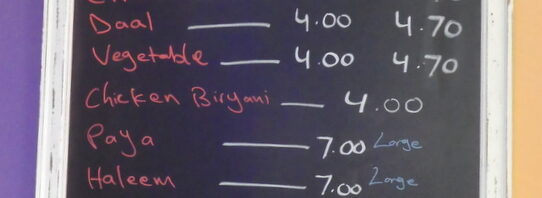 Daal 4.00 4.70
Vegetable 4.00 4.70
Chicken Biryani 4.00
Paya 7.00 Large
Haleem 7.00 Large